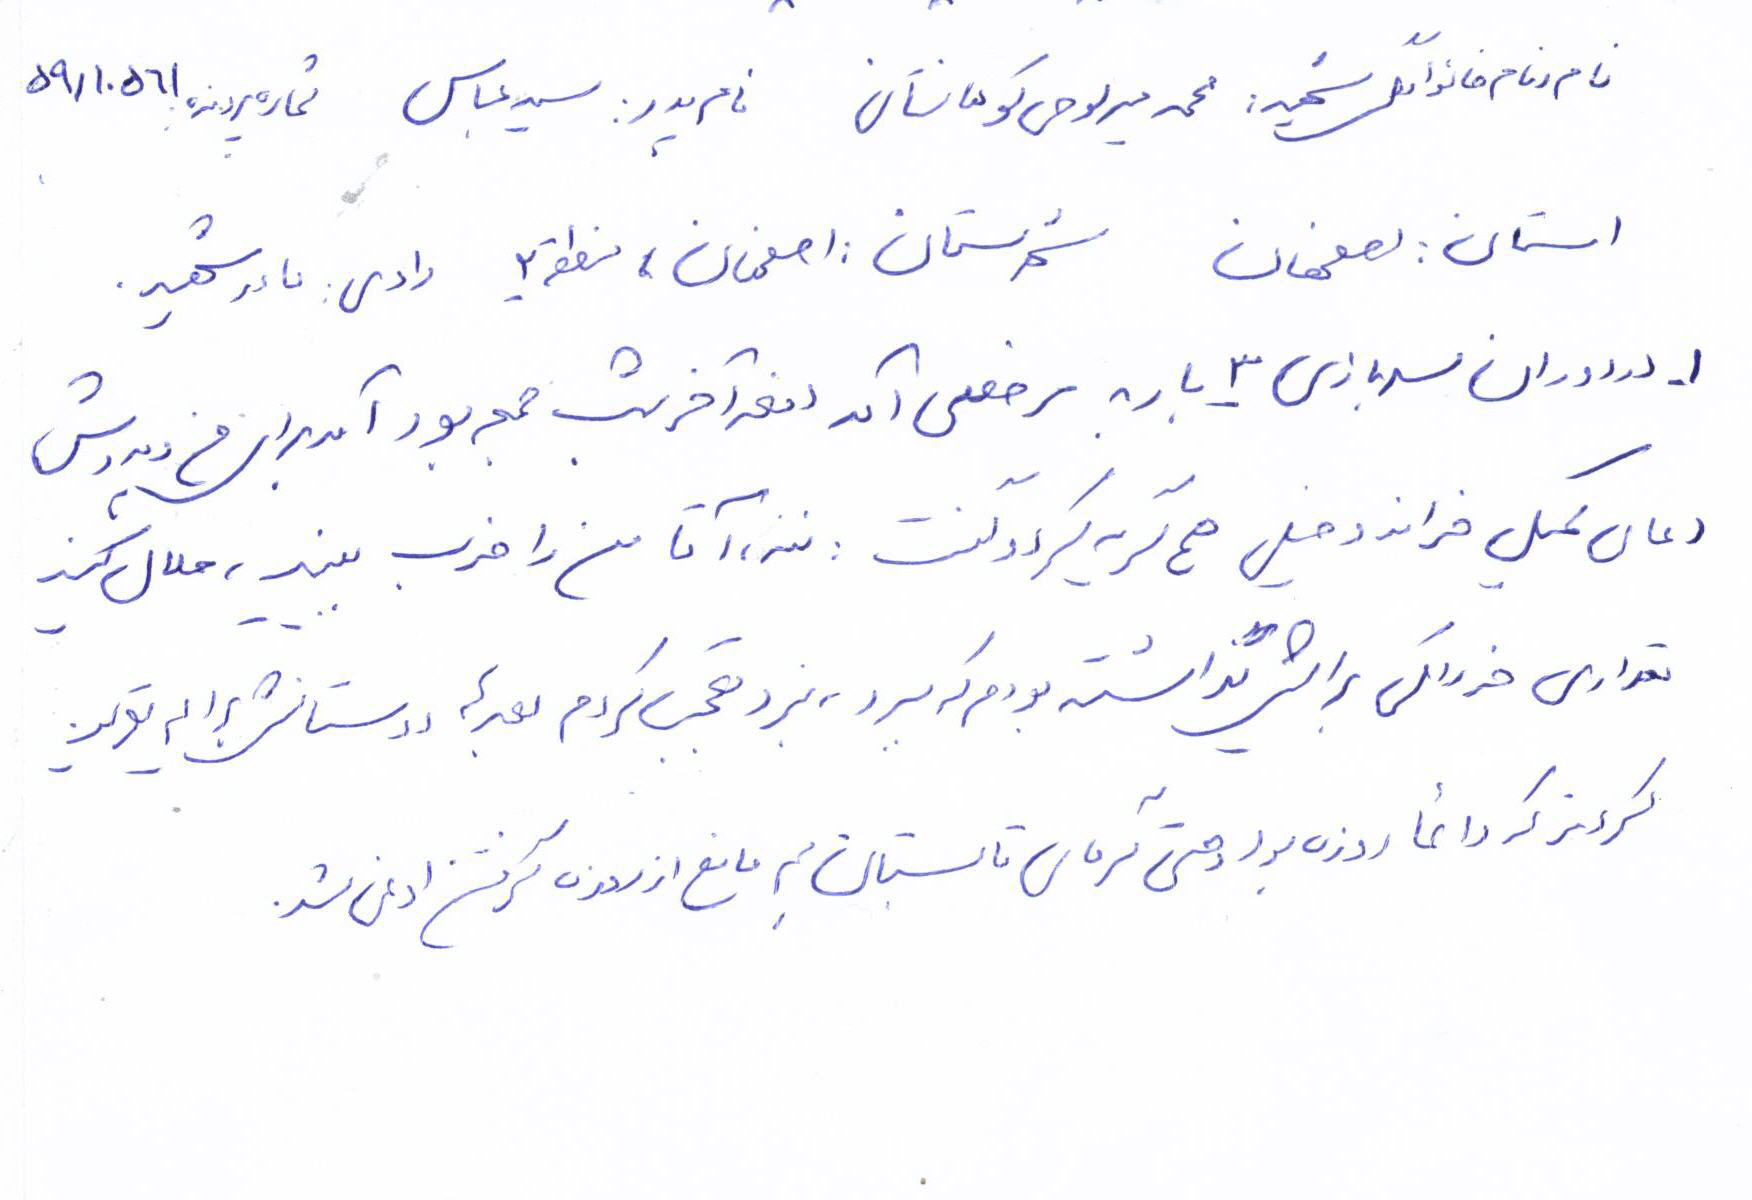 نام و نام خانوادگی شهید: محمد میرلوحی کوهانستانی نام پدر: سید عباس شماره پرونده: ۵۹/۱۰۵۶۱
استان: اصفهان شهرستان: اصفهان، منطقه ۲ راوی: مادر شهید.
۱- در دوران سربازی ۳ بار به مرخصی آمد دفعه آخر شب جمعه بود آمد برای من و پدرش
دعای کمیل خواند و خیلی هم گریه کرد و گفت: ننه، آقا من را خوب ببینید، حلال کنید
مقداری خوراکی برایش گذاشته بودم که ببرد، نبرد تعجب کردم بعد که دوستانش برایم تعریف
کردند که دائماً روزه بود و حتی گرمای تابستان هم مانع از روزه گرفتن او نمی شد.